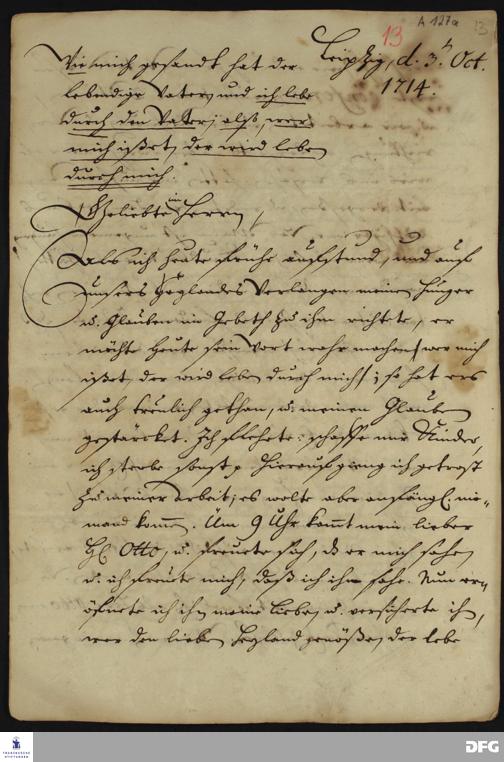 A 127a
13
13
Leipzig, d. 3.t Oct.
1714.
Wie mich gesandt hat der
lebendige Vater, und ich lebe
durch den Vater; also, wer
mich ißet, der wird leben
durch mich.
Geliebte im Herrn,
Als ich heute frühe aufstund, und auf
unsers Heylandes Verlangen meinen Hunger
u. Glauben im Gebeth zu ihm richtete, er
möchte heute sein Wort wahr machen, wer mich
ißet, der wird leben durch mich; so hat ers
auch treulich gethan, u. meinen Glauben
gestärcket. Ich flehete: schaffe mir Kinder,
ich sterbe sonst p Hierauf gieng ich getrost
zu meiner Arbeit; es wolte aber anfängl. nie-
mand komen. Um 9 Uhr kommt mein lieber
H. Otto, u. freuete sich, daß er mich sahe,
u. ich freute mich, daß ich ihn sahe. Nun er-
öfnete ich ihm meine Liebe, u. versicherte ihn,
wer den lieben Heyland genößen, der lebe
FRANCKESCHE STIFTUNGEN
DFG